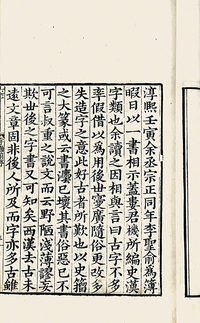 淳熙壬寅余丞宗正同年李聖俞為簿
暇日以一書相示蓋婁君機所編史漢
字類也余讀之因相與言曰古字不多
率假借以為用後世寖廣隨俗更改多
失造字之意此好古者所歎也以史籀
之大篆或云書灋已壞其書俗惡已不
可言叔重之說文而云野陋淺薄謬妄
欺世後之字書又可知矣西漢去古未
遠文章固非後人所及而字亦多古雖